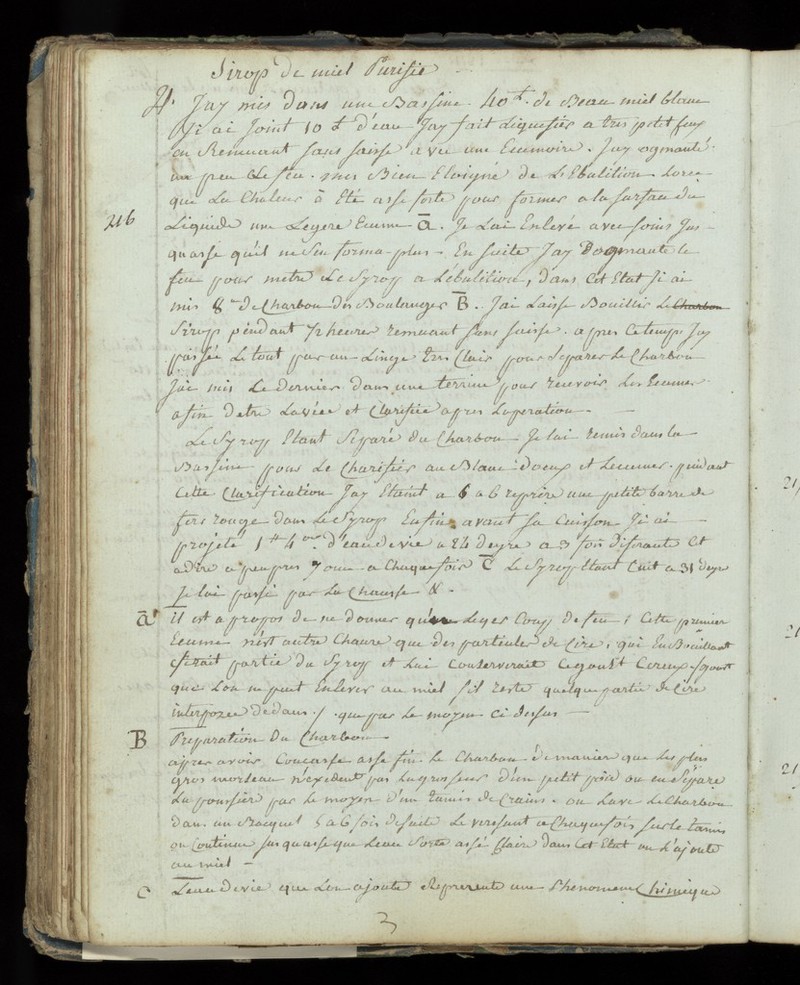 Sirop de miel Purifié
♃. Jay mis dans une Bassine 40 ℔. de Beau miel blanc
Ji ai Joint 10 ℔ d'eau Jay fait Liquefier a tres petit feux
en Remuant sans saisse avec une Ecumoire. Jay ogmanté
un peu Le feu. mes Bien Eloigné de L'Ebulition. Lorce
que La Chaleur à Eté asse forte pour former a la surface du
216 Liquide une Legere Ecume A. Je L'ai Enlevé avec soins Jus-
quasse qu'il ne sen forma plus. En suite Jay Dogmanté le
feu pour metre Le Syrop a Lébulition, dans Cet Etat Ji ai
mis 8 de Charbon des Boulanger B. J'ai Laisse Bouillir Le Charbon
Sirop pendant 1/2 heures remuant sans saisse. apres Ce temps Jay
passée Le tout par un Linge tres Clair pour Separer Le Charbon
J'ai mis Le dernier dans une terrine pour recevoir Les Ecumes
afin d'etre Lavée et Clarifiée apres Loperation.
Le Syrop Etant Separé du Charbon Je lai remis dans la
Bassine pour Le Clarifier au Blanc Doeux et Lecumer. pendant
Cette Clarification Jay Eteint a 6 a 6 reprise une petite barre de
fers rouge dans Le Syrop Enfin avant sa Cuisson Ji ai
projeté 1 ℔ 4 onc. d'eau de vie a 24 degre a 3 fois diferante Cet
adire a peu pres 7 once a Chaque fois C Le Syrop Etant Cuit a 31 degre
Je lai passé par La Chausse &.
A Il est a propos de ne donner qu'un Leger Coup de feu; Cette premier
Ecume n'est autre Chause que des particules de Cire, qui En Bouillant
ferait partie du Syrop et Lui Conserverait Ce goust Cireux. goust
que Lon ne peut Enlever au miel s'il reste quelque partie de Cire
interposée dedans /. que par Le moyen Ci dessus
B Preparation du Charbon
apres avoir Concassé asse fin Le Charbon de manier que Les plus
gros morceau n'exédent pas La grosseur d'un petit pois on en Separe
La poussier par Le moyen d'un tamis de Crains. on Lave Le Charbon
dans un Bacquet 5 a 6 fois desuite Le versant a Chaque fois sur Le tamis
on Continue Jusquasse que Leau sorte assé Claire dans Cet Etat on L'ajoute
au miel
C Leau de vie que Lon ajoute Represente une Phenomene Chimique
3